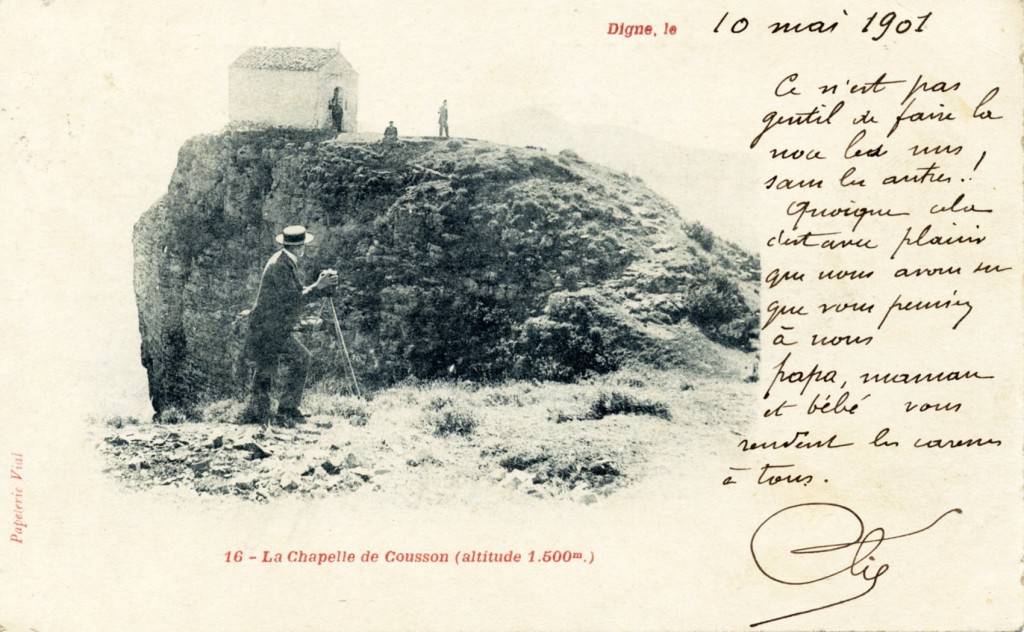 Digne, le 10 mai 1901
Ce n'est pas
gentil de faire la
noce les uns,
sans les autres!
Quoique cela
c'est avec plaisir
que nous avons su
que vous pensiez
à nous
papa, maman
et bébé vous
rendent les caresses
à tous.
Papeterie Vial
16 - La Chapelle de Cousson (altitude 1.500m.)